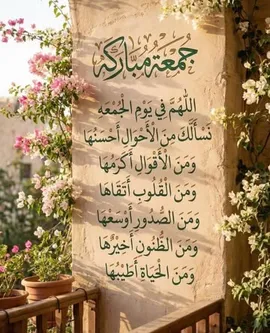 جُمُعَة مُبَارَكَة
اللَّهُمَّ فِي يَوْمِ الْجُمُعَةِ
نَسْأَلُكَ مِنَ الْأَحْوَالِ أَحْسَنُهَا
وَمَنَ الْأَقْوَالِ أَكْرَمُهَا
وَمَنَ الْقُلُوبِ أَتْقَاهَا
وَمَنَ الصُّدُورِ أَوْسَعُهَا
وَمَنَ الظُّنُونِ أَخْيَرُهَا
وَمَنَ الْحَيَاةِ أَطْيَبُهَا